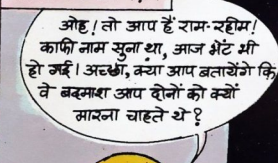 ओह! तो आप हैं राम-रहीम!
काफी नाम सुना था, आज भेंट भी
हो गई। अच्छा, क्या आप बतायेंगे कि
वे बदमाश आप दोनों को क्यों
मारना चाहते थे?